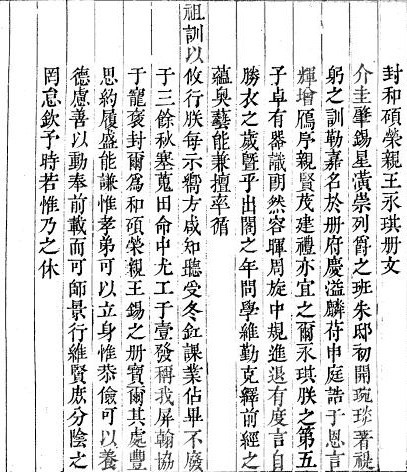 封和碩榮親王永琪册文
介圭肇錫星潢崇列爵之班朱邸初開琬琰著褆
躬之訓勒嘉名於册府慶溢麟苻申庭誥于恩言
輝增鴈序親賢茂建禮亦宜之爾永琪朕之第五
子卓有器識朗然容暉周旋中規進退有度言自
勝衣之歲暨乎出閤之年問學維勤克繹前經之
蘊奥藝能兼擅率循
祖訓以攸行朕每示嚮方咸知聽受冬釭課業佔畢不廢
于三餘秋塞蒐田命中尤工于壹發稱我屏翰協
于寵褒封爾爲和碩榮親王錫之册寶爾其處豐
思約履盛能謙惟孝弟可以立身惟恭儉可以養
德慮善以動奉前載而可師景行維賢庶分陰之
罔怠欽予時若惟乃之休